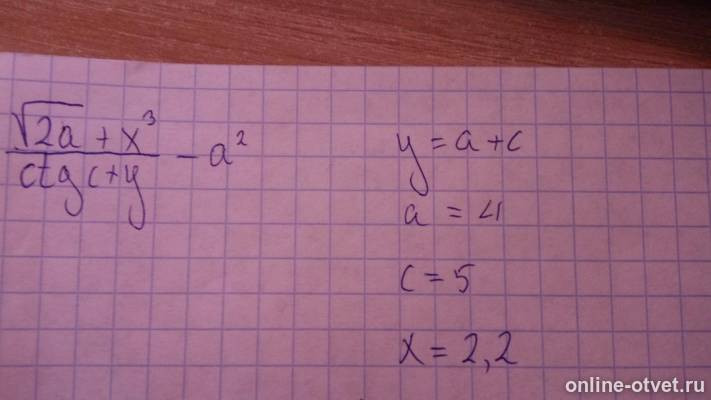 √2a + x³
ctg c+y
- a²
y = a + c
a = 4
c = 5
x = 2,2
online-otvet.ru